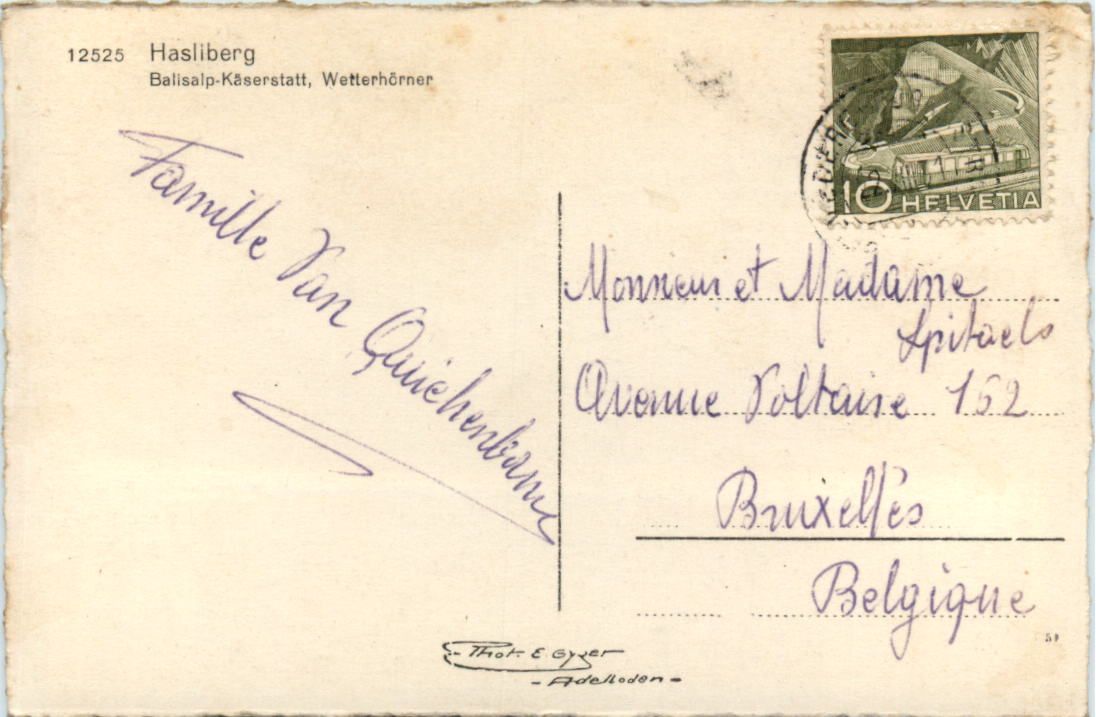 12525 Hasliberg
Balisalp-Käserstatt, Wetterhörner
10 HELVETIA
Famille Van Quickenbame
Monsieur et Madame
Spitaels
Avenue Voltaire 162
Bruxelles
Belgique
- Phot. E. Gyger
- Adelboden -